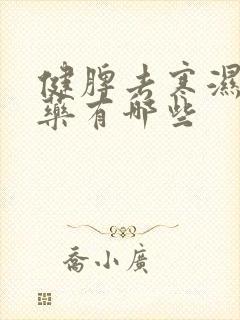 健脾去寒濕
藥有哪些
喬小廣